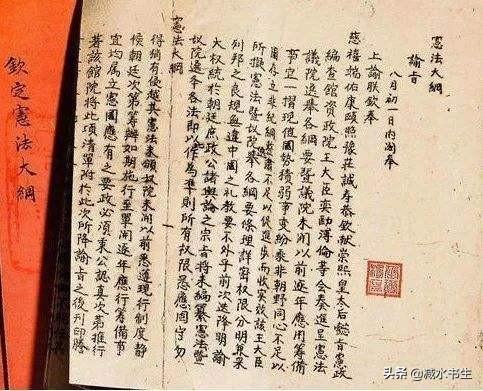 憲法大綱
諭旨
八月初一日內閣奉
上諭朕欽奉
慈禧端佑康頤照豫莊誠壽恭欽獻崇熙皇太后懿旨憲政
編查館資政院王大臣奕劻溥倫等會奏進呈憲法
議院選舉各綱要暨議院未開以前逐年應用籌備
事宜一摺現值國勢積弱事變紛乘非朝野同心不足以
圖存立非紀綱整肅不足以促進步而收實效該王大臣
所擬憲法暨議院選舉各綱要條理詳密權限分明兼采
列邦之良規無違中國之礼教要不外乎前次迭降明諭
大权統于朝廷庶政公諸輿論之宗旨將來編纂憲法暨
議院選舉各法即以作為準則所有权限悉應固守勿
憲法大綱
得稍有侵越其憲法未頒議院未開以前悉遵現行制度靜
候朝廷次第籌辦如期施行至單開逐年應行籌備事
宜均屬立憲國應有之要政必須秉公認真次第推行
著該館院將此項清單附於此次所降諭旨之後刊印謄
欽定憲法大綱
头条 @减水书生